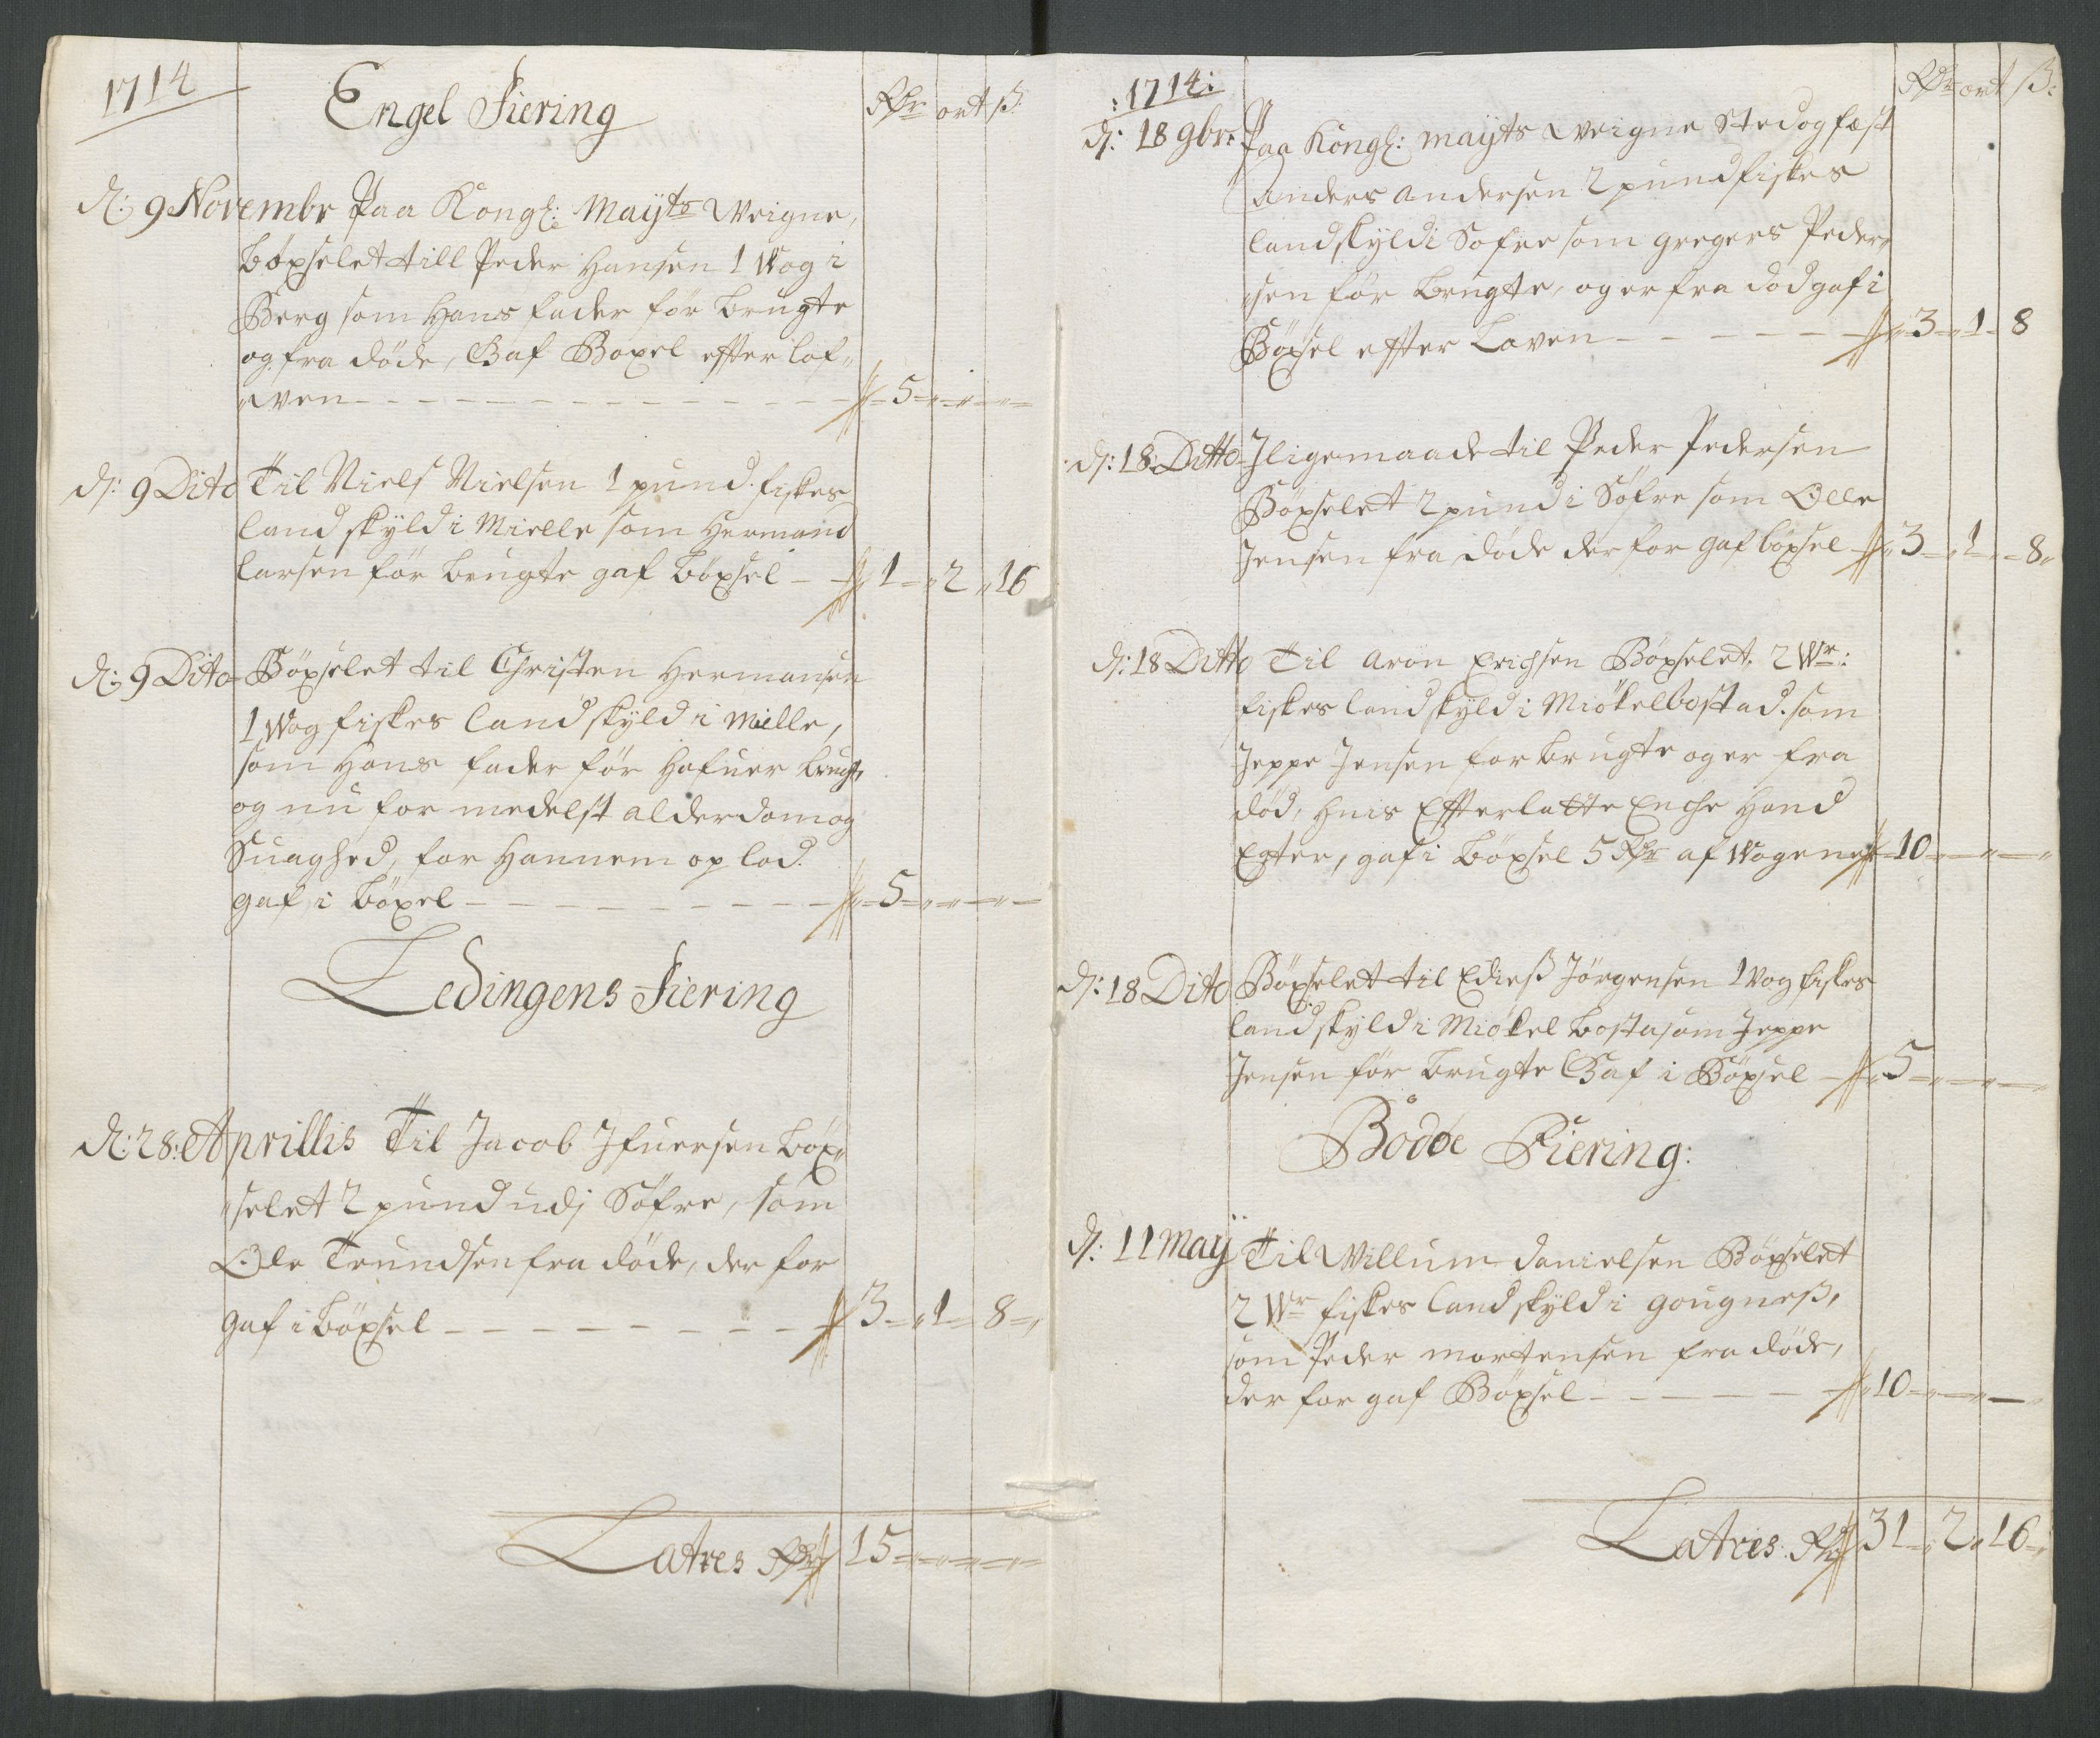 1714
Engel Fiering
Rdr ort ß:
d: 9 Novembr Paa Kongl: Mayts Weigne,
böxselet till Peder Hansen 1 Wog i
Berg som Hans fader för brugte
og fra döde, Gaf Boxel effter lof-
wen - - - 5 - - -
d: 9 Dito Til Niels Nielsen 1 pund fiskes
landskyld i Mielle som Hermand
Larsen för brugte gaf böxsel - 1 - 2 - 16
d: 9 Dito Böxselet til Christen Hermansen
1 Wog fiskes landskyld i Mille,
som Hans fader för Hafuer brugt,
og nu formedelst alderdom og
Suaghed, for Hannem oplod.
gaf i böxel - - - 5 - - -
Ledingens Fiering
d: 28: Aprillis Til Jacob Ifuersen böx-
selet 2 pund udj Söfre, som
Ole Trundsen fra döde, der for
gaf i böxsel - - - 3 - 1 - 8 -
Latres Rdr 15 - - -
:1714:
Rdr ort ß:
d: 18 9br: Paa Kongl: Mayts Weigne Sted og fæst
Anders Andersen 2 pund fiskes
landskyld i Sofre som gregers Peder-
sen för brugte, og er fra död gaf i
Böxsel effter Loven - - - 3 - 1 - 8
d: 18 Ditto Iligemaade til Peder Pedersen
Böxselet 2 pund i Söfre som Olle
Jensen fra döde der for gaf böxsel 3 - 1 - 8
d: 18 Ditto Til Aron Erichsen Böxselet 2 Wr:
fiskes landskyld i Miökelbostad som
Jeppe Jensen for brugte og er fra
död, huis Effterlatte Enche Hand
Egter, gaf i böxsel 5 Rdr af Wogene 10 - - -
d: 18 Dito Böxselet til Edieß Jörgensen 1 Wog fiskes
landskyld i Miökelbosta som Jeppe
Jensen för brugte Gaf i Böxsel - 5 - - -
Bodöe Fiering:
d: 11 Maÿ Til Willum Danielsen Böxselet
2 Wr fiskes landskyld i gougneß,
som Peder Mortensen fra döde,
der for gaf Böxsel - - - 10 - - -
Latres: Rdr 31 - 2 - 16 -